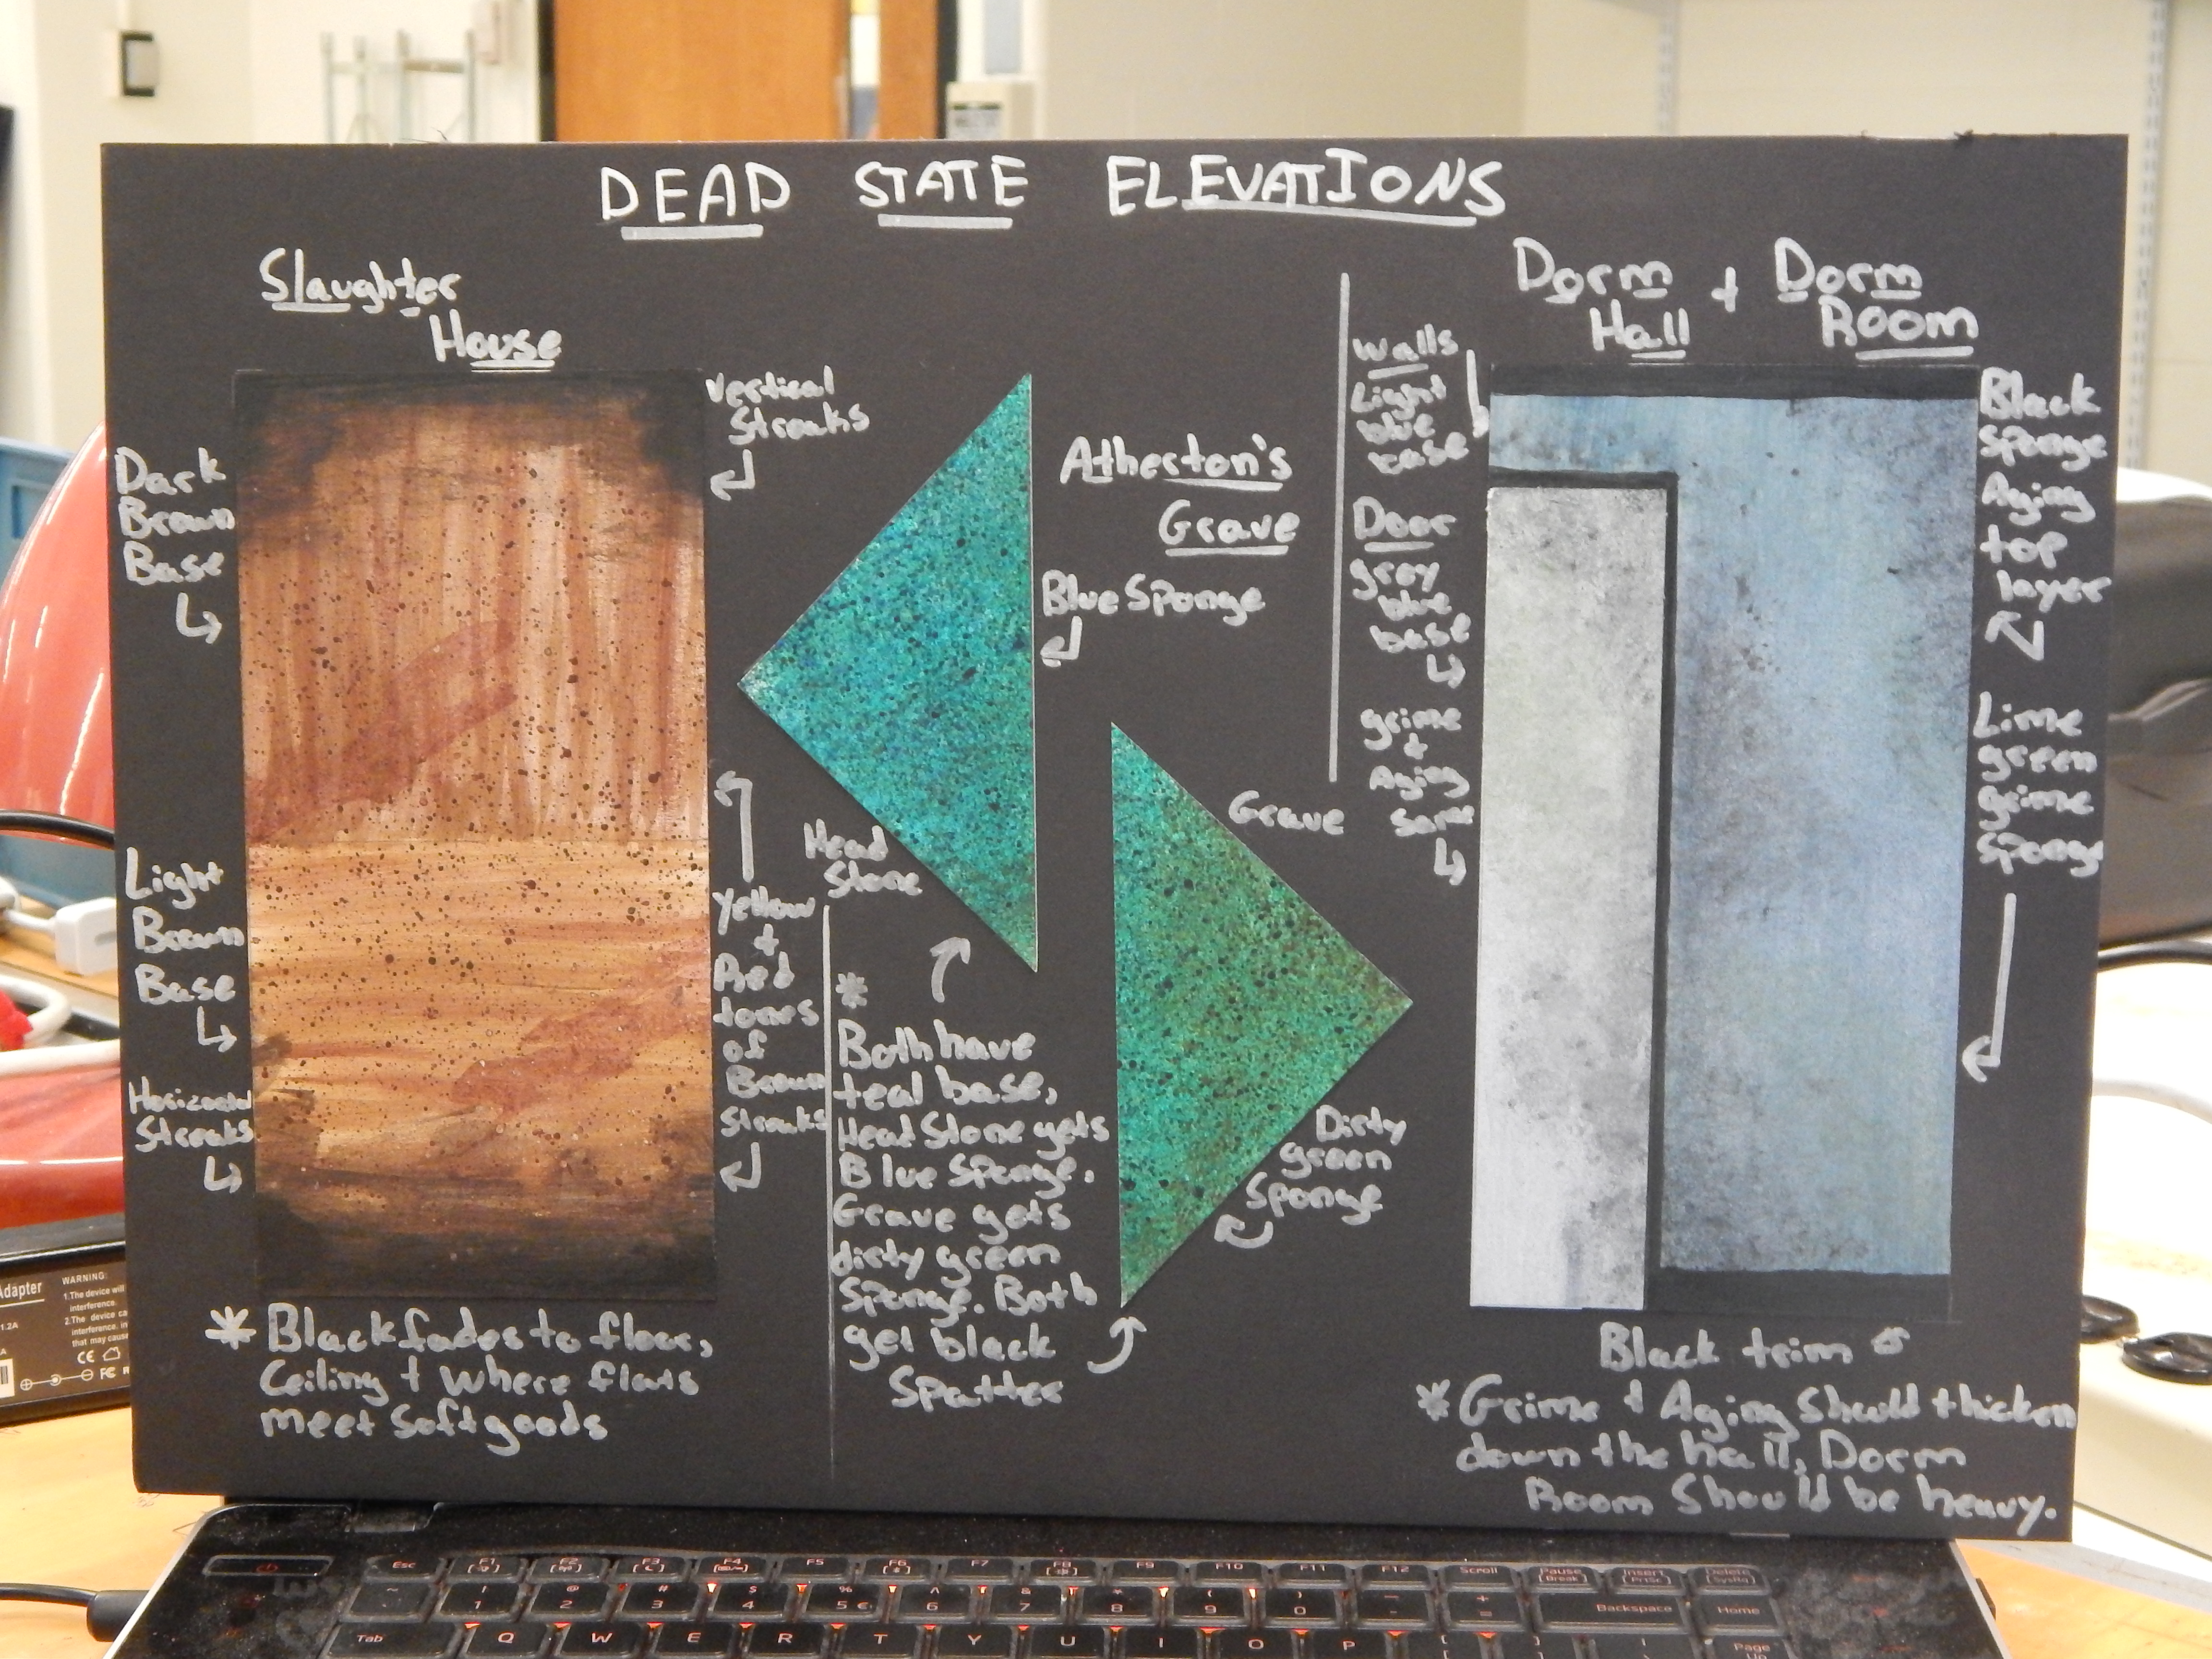 DEAD STATE ELEVATIONS
Slaughter
House
Vertical
Streaks
Dark
Brown
Base
Light
Brown
Base
Horizontal
Streaks
Yellow
+
Red
tones
of
Brown
Streaks
* Black fades to floor,
Ceiling + Where flats
meet Softgoods
Atherton's
Grave
Blue Sponge
Head
Stone
Grave
Dirty
green
Sponge
*
Both have
teal base,
Head Stone gets
Blue Sponge.
Grave gets
dirty green
Sponge. Both
get black
Spatter
Dorm
Hall
+
Dorm
Room
Walls
Light
blue
base
Door
grey
blue
base
grime
+
Aging
Same
Black
Sponge
Aging
top
layer
Lime
green
grime
Sponge
Black trim
* Grime + Aging Should thicken
down the hall, Dorm
Room Should be heavy.
Adapter
WARNING:
1.The device will
interference.
2.The device ca
interference, in
that may cause
1.2A
CE
FC
Esc F1 F2 F3 F4 F5 F6 F7 F8 F9 F10 F11 F12 Scroll Pause Insert Delete
Break PrtSc SysRq
~ ! @ # $ % ^ & * ( ) - +
1 2 3 4 5 € 6 7 8 9 0 = Backspace Home
Tab Q W E R T Y U I O P [ ] \ Page
Up